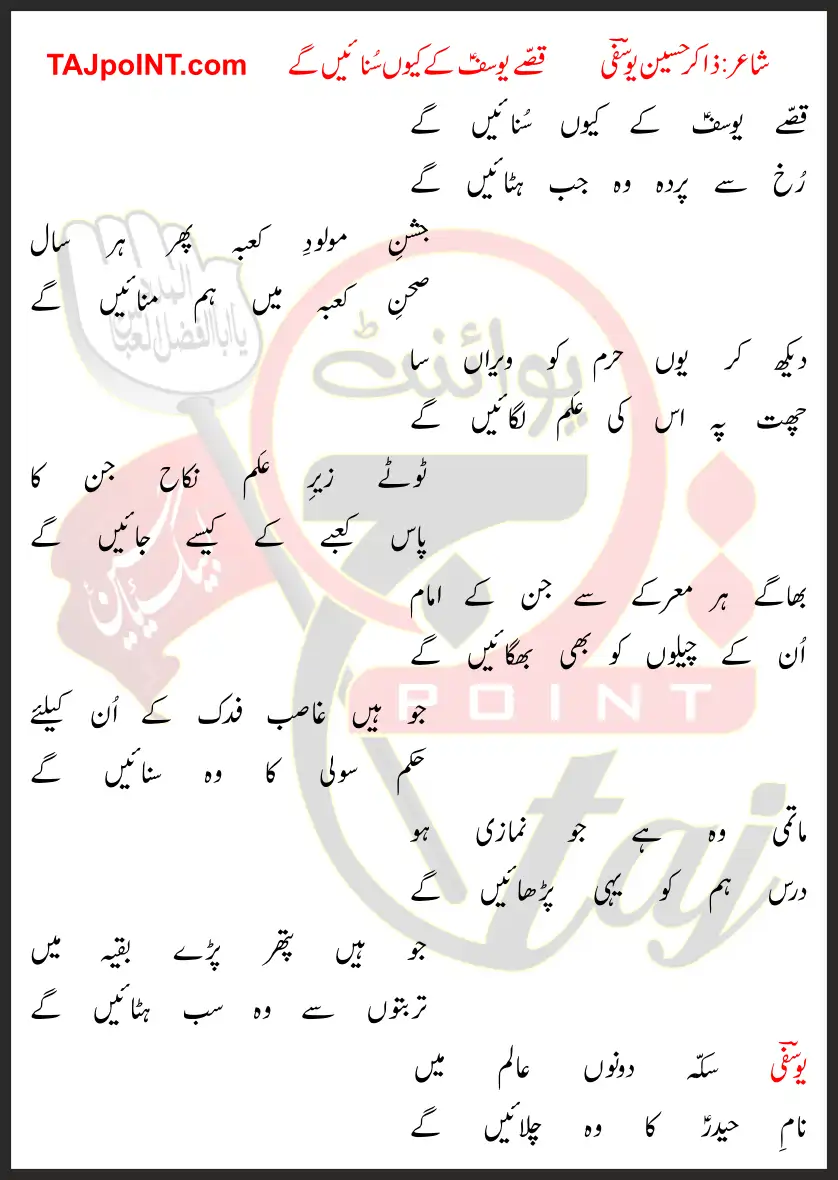 شاعر: ذاکر حسین یوسفؔی قصّے یوسفؑ کے کیوں سُنائیں گے TAJpoINT.com
قصّے یوسفؑ کے کیوں سُنائیں گے
رُخ سے پردہ وہ جب ہٹائیں گے
جشنِ مولودِ کعبہ پھر ہر سال
صحنِ کعبہ میں ہم منائیں گے
دیکھ کر یوں حرم کو ویراں سا
چھت پہ اس کی عَلم لگائیں گے
ٹوٹے زیرِ عَلم نکاح جن کا
پاس کعبے کے کیسے جائیں گے
بھاگے ہر معرکے سے جن کے امام
اُن کے چیلوں کو بھی بھگائیں گے
جو ہیں غاصب فدک کے اُن کیلئے
حکم سولی کا وہ سنائیں گے
ماتمی وہ ہے جو نمازی ہو
درس ہم کو یہی پڑھائیں گے
جو ہیں پتھر پڑے بقیہ میں
تربتوں سے وہ سب ہٹائیں گے
یوسفؔی سکّہ دونوں عالم میں
نامِ حیدرؑ کا وہ چلائیں گے
یا ابالفضل العباس
لبیک یا حسین
پوائنٹ
تاج
POINT
taj